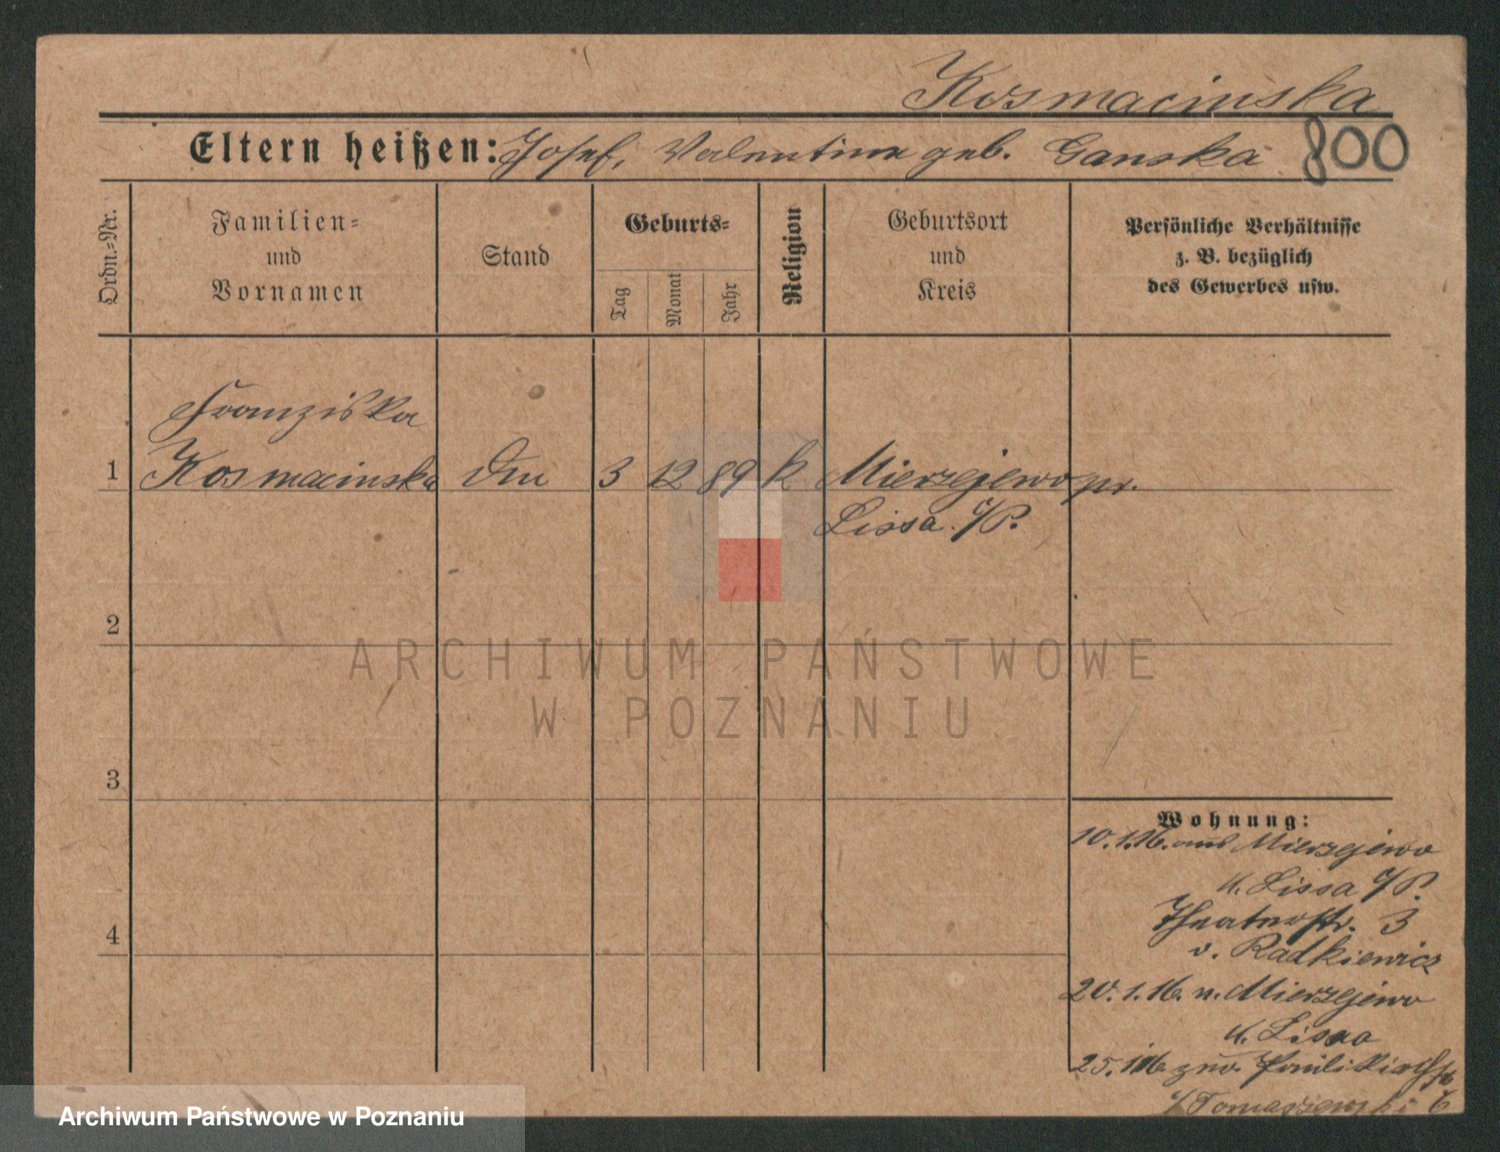 Kosmacinska
Eltern heißen: Josef, Valentine geb. Ganska 800
Ordn.-Nr.
Familien-
und
Vornamen
Stand
Geburts-
Tag
Monat
Jahr
Religion
Geburtsort
und
Kreis
Persönliche Verhältnisse
z. B. bezüglich
des Gewerbes usw.
Franziska
1 Kosmacinska 3 12 89 k Mierzejewo pr.
Lissa i/P.
2
3
4
Wohnung:
10.1.16. aus Mierzejewo
K. Lissa i/P.
Theaterstr. 3
b. Radkiewicz
20.1.16. n. Mierzejewo
K. Lissa
25. zur. Paulikirchstr
Tomaszewski
ARCHIWUM PAŃSTWOWE
W POZNANIU
Archiwum Państwowe w Poznaniu